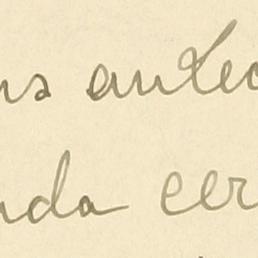 ns antec
nda cer